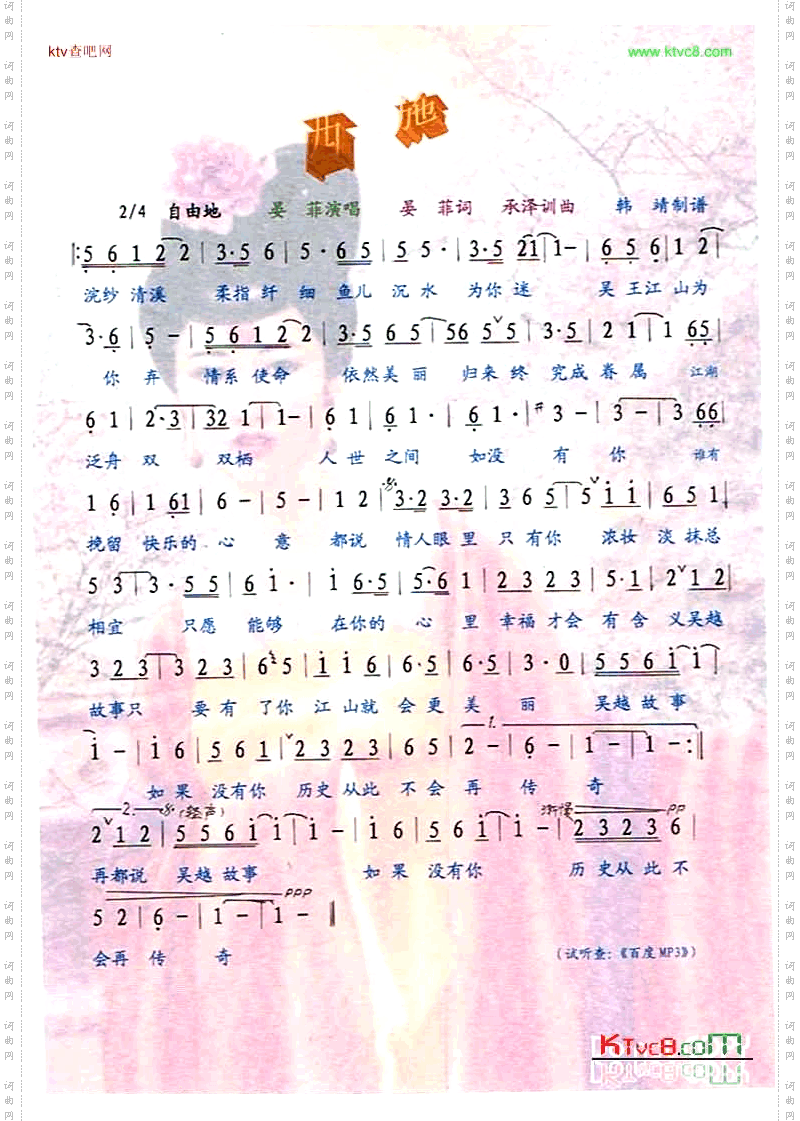 ktv查吧网 www.ktvc8.com
西 施
2/4 自由地 晏 菲演唱 晏 菲词 承泽训曲 韩 靖制谱
‖:5 6 1 2 2 | 3·5 6 | 5·6 5 | 5 5· | 3·5 21 | 1- | 6 5 6 | 1 2 |
浣纱 清溪 柔指 纤 细 鱼儿 沉 水 为你 迷 吴 王江 山为
3·6 | 5 - | 5 6 1 2 2 | 3·5 6 5 | 56 5 5 | 3·5 | 2 1 | 1 65 |
你 弃 情系 使命 依然美 丽 归来 终 完成 眷 属 江湖
6 1 | 2·3 | 32 1 | 1- | 6 1 | 6 1· | 6 1· | 3 - | 3 - | 3 66 |
泛舟 双 双栖 人 世 之间 如没 有 你 谁有
1 6 | 1 61 | 6 - | 5 - | 1 2 | 3·2 3·2 | 3 6 5 | 5 i i | 6 5 1 |
挽留 快乐的 心 意 都说 情人眼 里 只 有你 浓妆 淡 抹总
5 3 | 3· 5 5 | 6 i· | i 6·5 | 5·6 1 | 2 3 2 3 | 5·1 | 2 1 2 |
相宜 只愿 能够 在你的 心 里 幸福 才会 有 含 义吴越
3 2 3 | 3 2 3 | 6 5 | i i 6 | 6·5 | 6·5 | 3·0 | 5 5 6 i | i |
故事只 要 有 了你 江 山就 会 更 美 丽 吴越 故 事
i - | i 6 | 5 6 1 | 2 3 2 3 | 6 5 | 2 - | 6 - | 1 - | 1 - :‖
1.
如 果 没有你 历史 从此 不 会 再 传 奇
2. (轻声) 渐慢 pp
2 1 2 | 5 5 6 i | i | i - | i 6 | 5 6 i | i - | 2 3 2 3 6 |
再都说 吴越 故事 如 果 没有你 历 史从 此 不
ppp
5 2 | 6 - | 1 - | 1 - ‖
会再 传 奇 (试听查:《百度MP3》)
KTvc8.com
词曲网